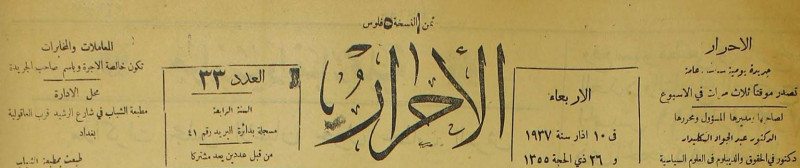 ثمن النسخة ٥ فلوس
الاحرار
جريدة يومية سياسية عامة
تصدر موقتاً ثلاث مرات في الاسبوع
لصاحبها ومديرها المسؤول ومحررها
الدكتور عبد الجواد الكليدار
دكتور في الحقوق والدبلوم في العلوم السياسية
الاربعاء
في ١٠ اذار سنة ١٩٣٧
و ٢٦ ذي الحجة ١٣٥٥
الأحرار
العدد ٣٣
السنة الرابعة
مسجلة بدائرة البريد رقم ٤١
من قبل عددين يعد مشتركا
المعاملات والمخابرات
تكون خالصة الاجرة وباسم صاحب الجريدة
محل الادارة
مطبعة الشباب في شارع الرشيد قرب العاقولية
بغداد
طبعت بمطبعة الشباب